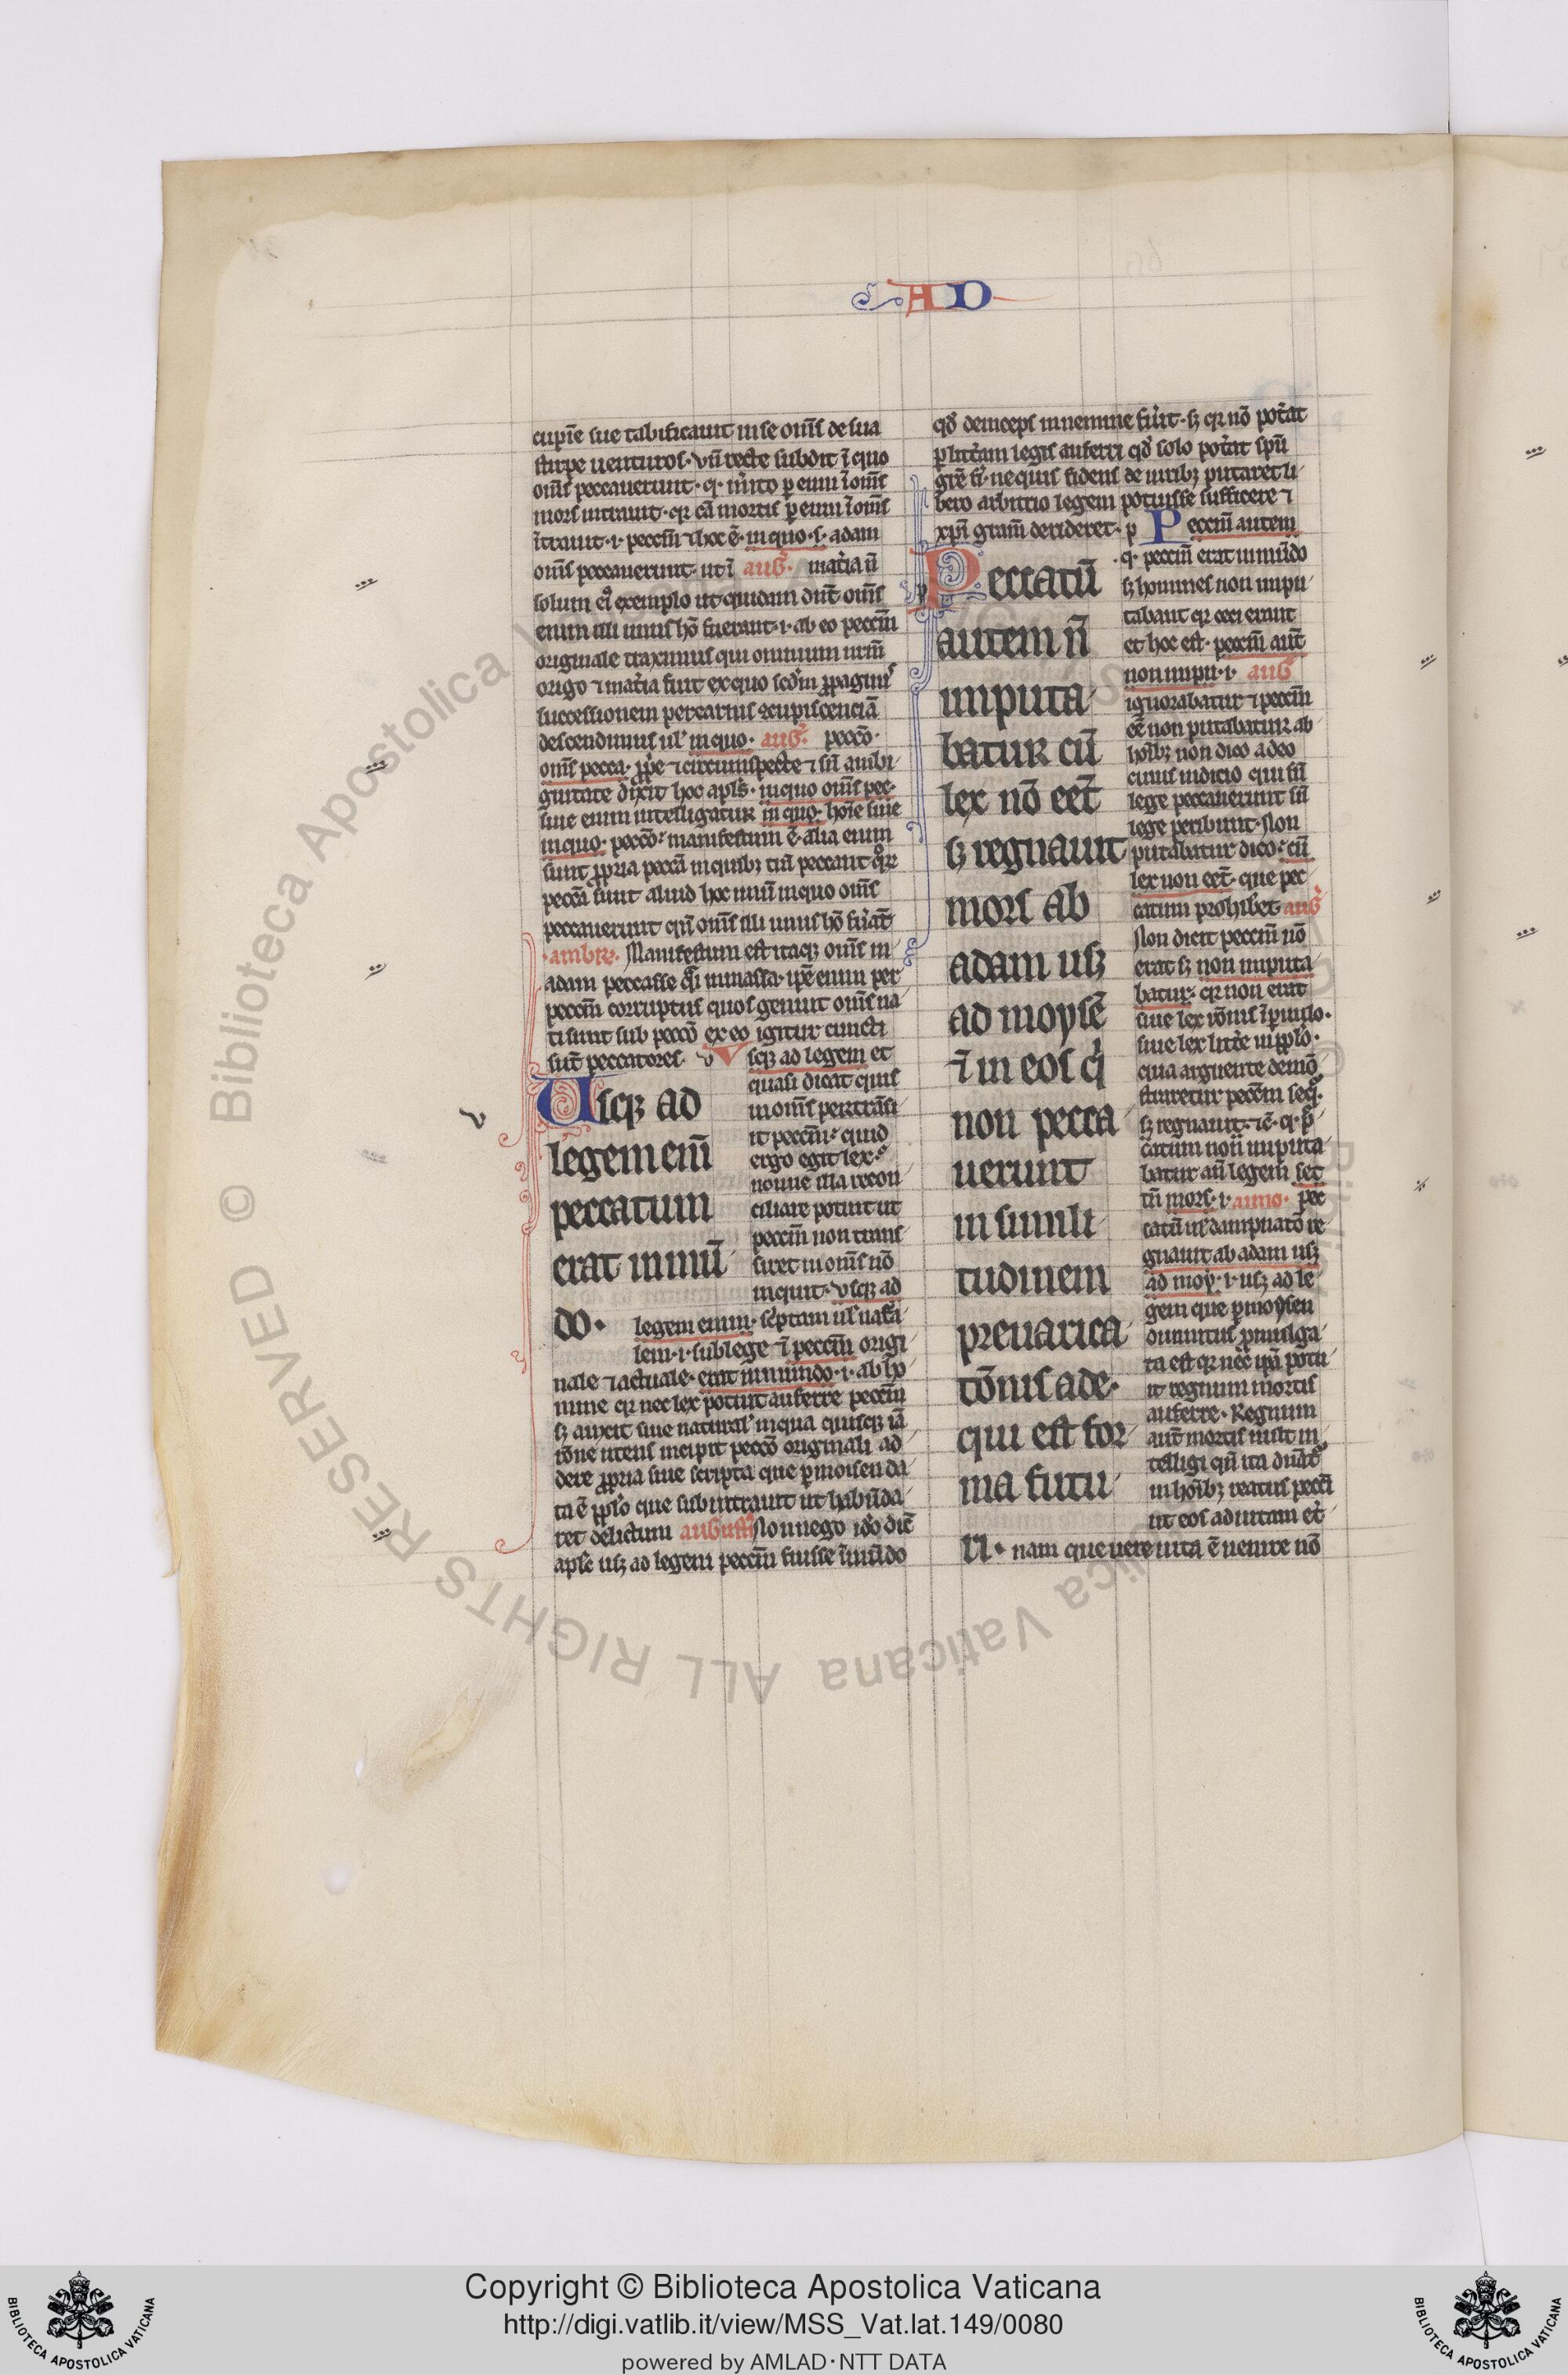 AD
cupīe sue tabificauit in se om̄s de sua
stirpe uenturos. vn̄ recte subdit ī quo
om̄s peccauerunt. q. m̄ito p eum ī om̄s
mors intrauit. qr cā mortis p eum ī om̄s
ītrauit .i. peccm̄ ⁊ hoc ē. in quo .s. adam
om̄s peccauerunt. ut ī aug̃. mat̃ia ñ
solum ei᷒ exemplo ut quidam dn̄t om̄s
enim illi unus hō fuerant .i. ab eo peccm̄
originale traximus qui omnium nrm̄
origo ⁊ mat̃ia fuit ex quo scd̄m ꝓpaginis
successionem peccatus ꝯcupiscenciā
descendimus ul' in quo. aug̃. peccō.
om̄s pecca. ꝓp̄e ⁊ circumspecte ⁊ sn̄ ambi
guitate dixit hoc apl's. in quo om̄s pec.
siue enim intelligatur in quo. hoīe siue
in quo. peccō. manifestum ē. alia enim
sunt ꝓpria peccā in quibꝫ tm̄ peccant qͦꝝ
peccā sunt aliud hoc unū in quo om̄s
peccauerunt qn̄ om̄s illi unus hō fuāt
.ambr̃. Manifestum est itaqꝫ om̄s in
adam peccasse qͣi in massa. ip̄e enim per
peccm̄ corruptus quos genuit om̄s na
ti sunt sub peccō ex eo igitur cuncti
sūt peccatores. v Vsqꝫ ad legem et
quasi dicat quis
in om̄s pertrāsi
it peccm̄. quid
ergo egit lex.
nonne illa recon
ciliare potuit ut
peccm̄ non trans
siret in om̄s nō
inquit. vsqꝫ ad
v
Usqꝫ ad
legem enī
peccatum
erat in mū
do.
legem enim. sc̄ptam ul' nat̃a
lem .i. sub lege ⁊ peccm̄ origi
nale ⁊ actuale. erat in mundo .i. ab ho
mine qr nec lex potuit auferre peccm̄
sꝫ auxit siue natural' in qua quisqꝫ iā
rōne utens incipit peccō originali ad
dere ꝓpria siue scripta que p moisen da
ta ē ppl'o que sub intrauit ut habūda
ret delictum august̃ Non nego id̄o dic̄
apl'e usꝫ ad legem peccm̄ fuisse ī mūdo
qd̄ deinceps in nemine fūit. sꝫ qr nō pot̃at
p litt̃am legis auferri qd̄ solo pot̃at spū
gr̄e fi. ne quis fidens de uiribꝫ putaret li
bero arbitrio legem potuisse sufficere ⁊
xp̄i gram̄ derideret. p Peccm̄ autem
.q. peccm̄ erat in mūdo
sꝫ homines non impu
tabant qr ceci erant
et hoc est. peccm̄ aut̄
non impu .i. aug̃
ignorabatur ⁊ peccm̄
eē non putabatur ab
hoībꝫ non dico a deo
cuius iudicio qui sn̄
lege peccauerunt sn̄
lege peribunt. Non
putabatur dico. cū
lex non eēt. que pec
catum prohibet aug̃
Non dicit peccm̄ nō
erat sꝫ non imputa
batur. qr non erat
siue lex rōnis ī puulo.
siue lex litt̃e in ppl'o.
qua arguente demō
straretur peccm̄ seqͥ.
sꝫ regnauit. ⁊c̄. q. p̄
catum non imputa
batur an̄ legem set
tn̄ mors .i. aimo. pec
catū ul' dampnatō re
gnauit ab adam usꝫ
ad moy. .i. usꝫ ad le
gem que p moysen
diuinitus pmulga
ta est qr nec ip̄a potu
it regnum mortis
auferre. Regnum
aut̄ mortis uult in
telligi qn̄ ita dn̄at̄
in hoībꝫ reatus peccī
ut eos ad uitam et̃
nam que uere uita ē uenire nō
Peccatū
autem n̄
imputa
batur cū
lex nō eēt
sꝫ regnauit
mors ab
adam usꝫ
ad moysē
⁊ in eos qͥ
non pecca
uerunt
in simili
tudinem
preuarica
tōnis ade.
qui est for
ma futu
ri.
Copyright © Biblioteca Apostolica Vaticana
http://digi.vatlib.it/view/MSS_Vat.lat.149/0080
powered by AMLAD·NTT DATA
BIBLIOTECA APOSTOLICA VATICANA
BIBLIOTECA APOSTOLICA VATICANA